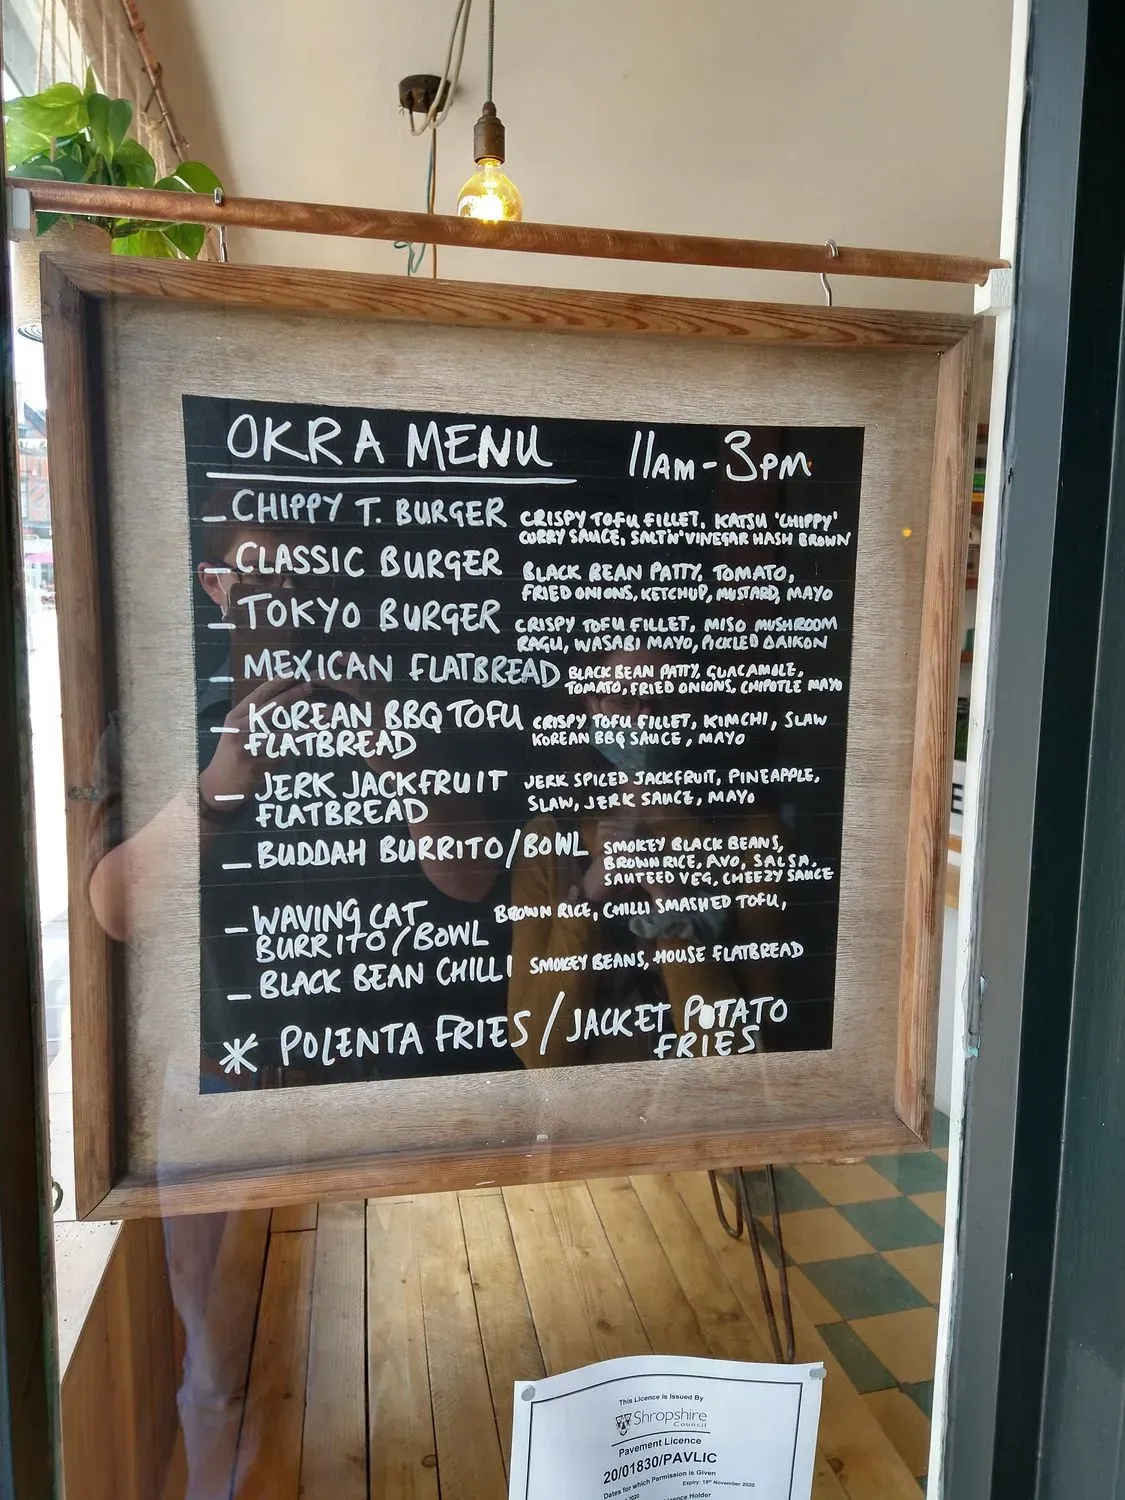 OKRA MENU 11AM - 3PM
- CHIPPY T. BURGER CRISPY TOFU FILLET, KATSU 'CHIPPY'
CURRY SAUCE, SALT'N'VINEGAR HASH BROWN
- CLASSIC BURGER BLACK BEAN PATTY, TOMATO,
FRIED ONIONS, KETCHUP, MUSTARD, MAYO
- TOKYO BURGER CRISPY TOFU FILLET, MISO MUSHROOM
RAGU, WASABI MAYO, PICKLED DAIKON
- MEXICAN FLATBREAD BLACK BEAN PATTY, GUACAMOLE,
TOMATO, FRIED ONIONS, CHIPOTLE MAYO
- KOREAN BBQ TOFU CRISPY TOFU FILLET, KIMCHI, SLAW
FLATBREAD KOREAN BBQ SAUCE, MAYO
- JERK JACKFRUIT JERK SPICED JACKFRUIT, PINEAPPLE,
FLATBREAD SLAW, JERK SAUCE, MAYO
- BUDDAH BURRITO/BOWL SMOKEY BLACK BEANS,
BROWN RICE, AVO, SALSA,
SAUTEED VEG, CHEEZY SAUCE
- WAVING CAT BROWN RICE, CHILLI SMASHED TOFU,
BURRITO/BOWL
- BLACK BEAN CHILLI SMOKEY BEANS, HOUSE FLATBREAD
* POLENTA FRIES / JACKET POTATO
FRIES
This Licence is Issued By
Shropshire
Council
Pavement Licence
20/01830/PAVLIC
Dates for which Permission is Given
2020 Expiry: 19th November 2020
Licence Holder